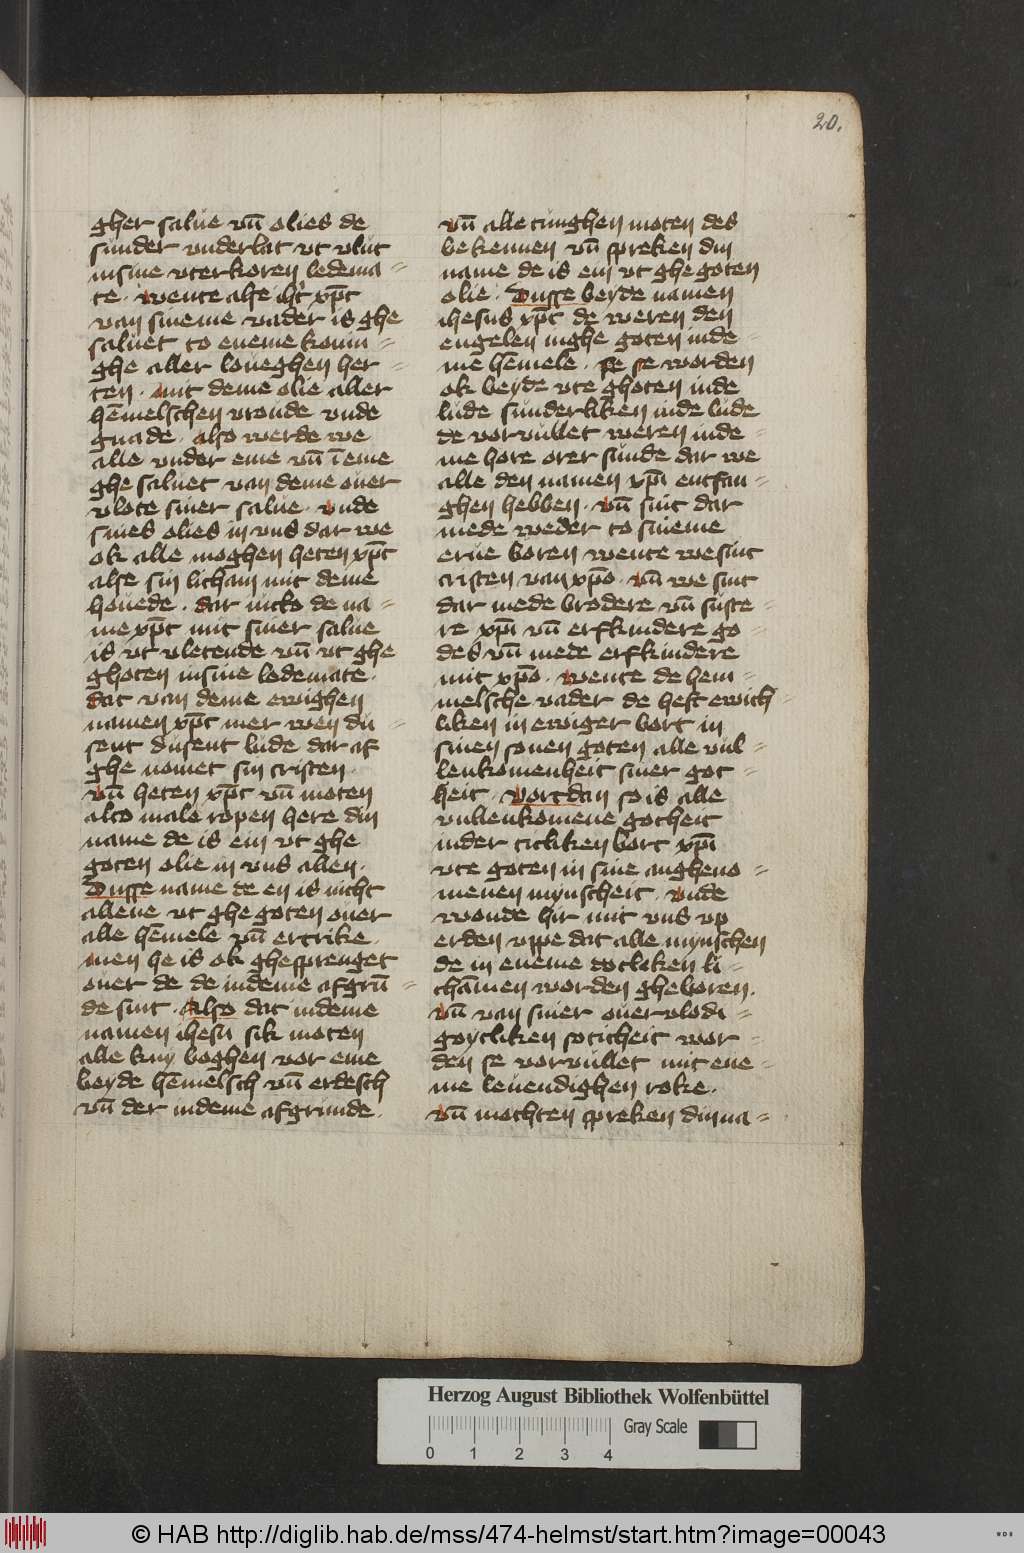 20.
gher salue vn̄ olies de
sunder vnderlat vt vlut
in sine vterkoren ledema-
te. wente alse ih̄c xp̄c
van sineme vader is ghe
saluet to eneme konin-
ghe aller loueghen her-
ten. mit deme olie aller
hēmelschen vroude vnde
gnade. also werde we
alle vnder eme vn̄ ī eme
ghe saluet van deme ouer
vlote siner salue. vnde
sines olies in vns dar we
ok alle moghen heten xp̄c
alse sin licham mit deme
houede. dar nicko de na-
me xp̄c mit siner salue
is vt vletende vn̄ vt ghe
ghoten in sine ledemate.
dat van deme ewighen
namen xp̄c mer wen du-
sent dusent lude dar af
ghe nomet sin cristen.
vn̄ heten xp̄c vn̄ moten
alto male ropen here din
name de is ein vt ghe
goten olie in vns allen.
Dusse name de en is nicht
allene vt ghe goten ouer
alle hēmele vn̄ ertrike.
men he is ok ghesprenget
ouer de de in deme afgrū-
de sint. Also dat in deme
namen ihesu sik moten
alle kny boghen vor eme
beyde hēmelsch vn̄ erdesch
vn̄ der in deme afgrunde.
vn̄ alle tunghen moten des
bekennen vn̄ spreken din
name de is ein vt ghe goten
olie. Dusse beyde namen
ihesus xp̄c de weren den
engelen in ghe goten in de-
me hēmele. se worden
ok beyde vte ghoten in de
lude sunderliken in de lude
de vorvullet weren in de-
me hore orer sunde dar we
alle den namen xp̄i entfan-
ghen hebben. vn̄ sint dar
mede weder to sineme
erue boren wente we sint
cristen van xp̄o. vn̄ we sint
dar mede brodere vn̄ suste-
re xp̄i vn̄ erfkindere go-
des vn̄ mede erfkindere
mit xp̄o. wente de hem-
melsche vader de heft ewich-
liken in ewiger bort in
sinen sonen goten alle vul-
lenkomenheit siner got-
heit. vortdan so is alle
vullenkomene gotheit
in der titliken bort xp̄i
vte goten in sine angheno-
menen mynscheit. vnde
wonde hir mit vns vp
erden vppe dat alle mynschen
de in eneme dotliken li-
chāmen worden gheboren.
vn̄ van siner ouervlodi-
goytliken soticheit wor-
den se vorvullet mit ene-
me leuendighen roke.
vn̄ mochten spreken din na-
Herzog August Bibliothek Wolfenbüttel
0 1 2 3 4
Gray Scale
© HAB http://diglib.hab.de/mss/474-helmst/start.htm?image=00043